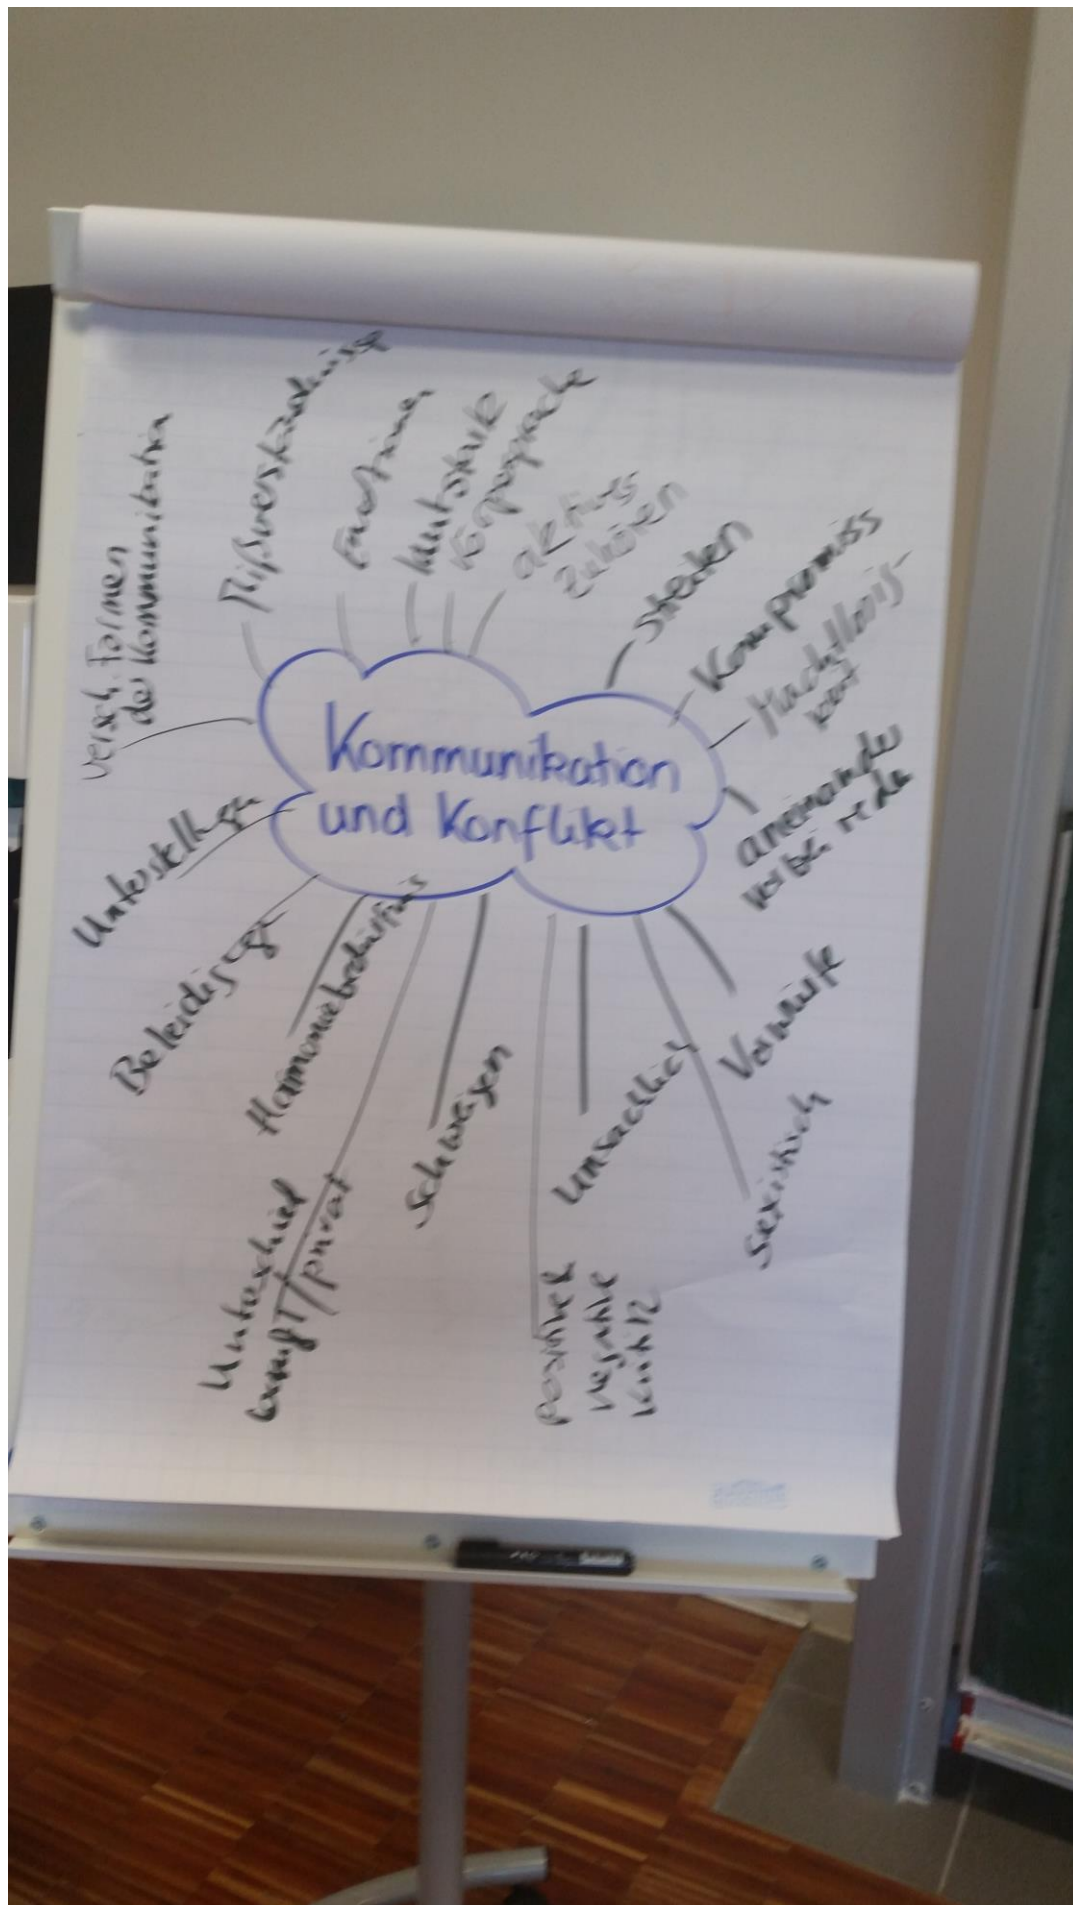 Kommunikation
und Konflikt
versch. Formen
der Kommunikation
Mißverständnisse
Emotionen
Lautstärke
Körpersprache
aktives
zuhören
streiten
Kompromiss
Machtlosig-
keit
aneinander
vorbei reden
Vorwürfe
sexistisch
unsachlich
positive &
negative
Kritik
Schweigen
Unterschied
beruf/privat
Harmoniebedürfnis
Beleidigung
Unterstellung